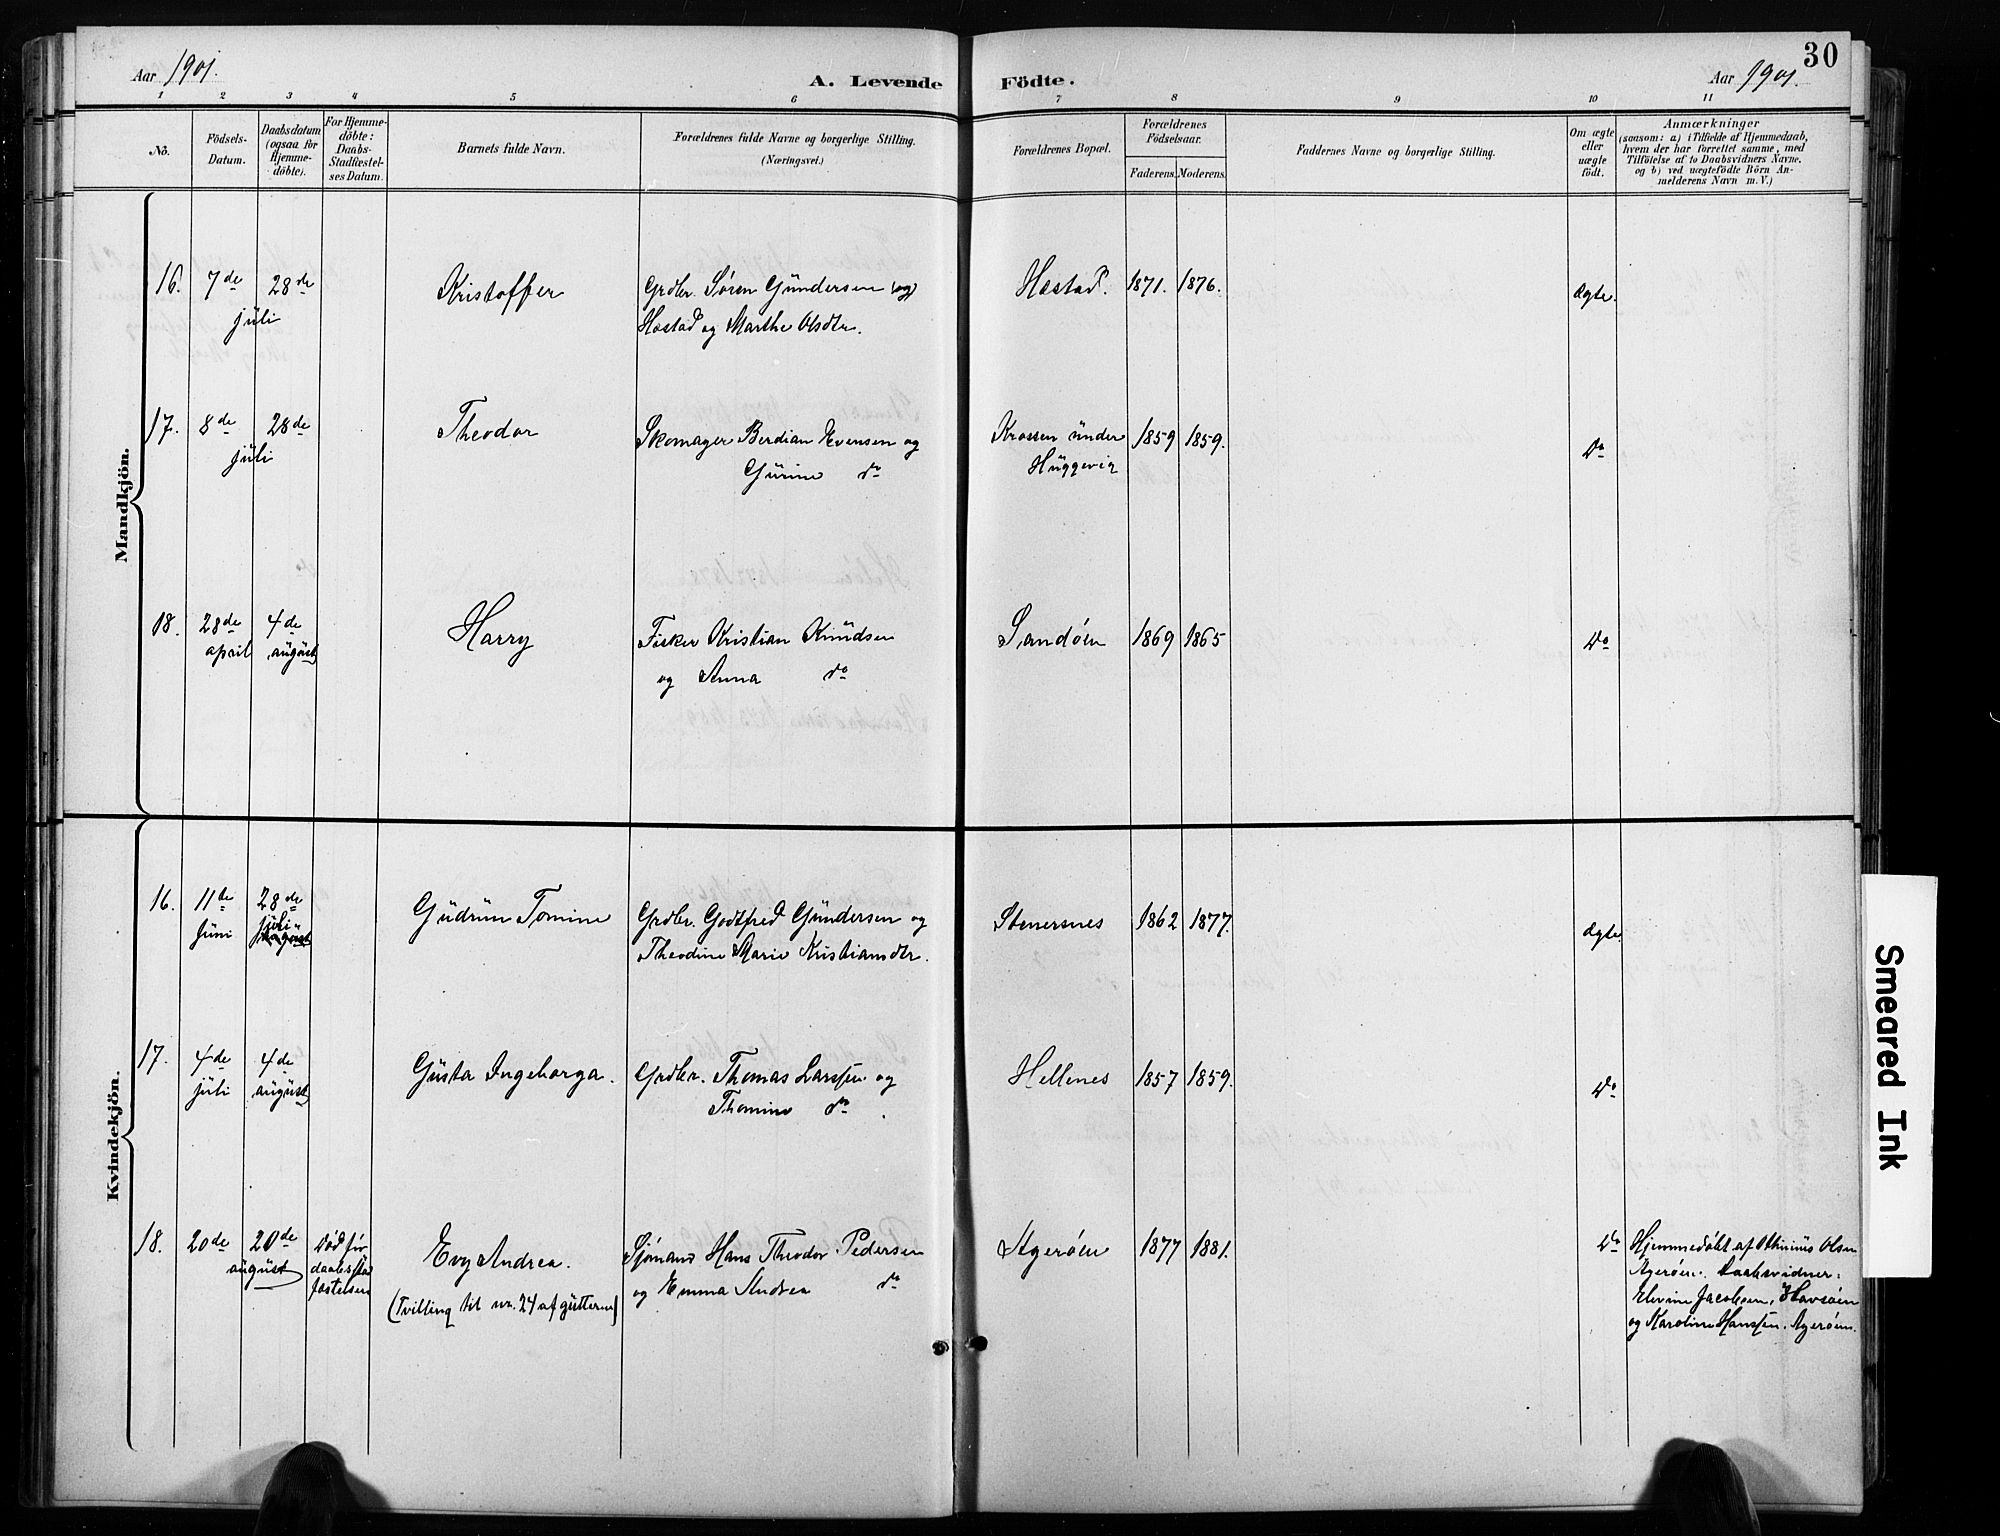 30
Aar 1901.
A. Levende Födte.
Aar 1901.
1 2 3 4 5 6 7 8 9 10 11
No.
Födsels-
Datum.
Daabsdatum
(ogsaa for
Hjemme-
döbte).
For Hjemme-
döbte:
Daabs-
Stadfæstel-
ses Datum.
Barnets fulde Navn.
Forældrenes fulde Navne og borgerlige Stilling.
(Næringsvei.)
Forældrenes Bopæl.
Forældrenes
Födselsaar.
Faderens.
Moderens.
Faddernes Navne og borgerlige Stilling.
Om ægte
eller
uægte
födt.
Anmærkninger
(saasom: a) i Tilfælde af Hjemmedaab,
hvem der har forrettet samme, med
Tilföielse af to Daabsvidners Navne,
og b) ved uægtefödte Börn An-
melderens Navn m.V.)
Mandkjön.
16. 7de 28de Kristoffer Grdbr. Søren Gundersen (og) Hæstad. 1871. 1876. ægte.
juli Hæstad og Marthe Olsdtr.
17. 8de 28de Theodor Skomager Berdian Evensen og Krossen under 1859 1859. Do
juli Gurine do Huggevig
18. 28de 4de Harry Fisker Kristian Knudsen Sandøen 1869 1865 Do
april august og Anna do
Kvindekjön.
16. 11te 28de Gudrun Tomine Grdbr. Godtfred Gundersen og Stenersnes 1862 1877. ægte.
juni juli
august Theodine Marie Kristiansdtr.
17. 4de 4de Gusta Ingeborga. Grdbr. Thomas Larssen og Hellenes 1857 1859. Do
juli august Thomine do.
18. 20de 20de Død før Evy Andrea. Sjømand Hans Theodor Pedersen Agerøen 1877 1881. Do Hjemmedøbt af Othinius Olsen
august daabsstad
fæstelsen (Tvilling til nr. 24 af gutterne) og Emma Andrea do Agerøen. Daabsvidner:
Elevine Jacobsen, Havsøen
og Karoline Hanssen. Agerøen.
Smeared Ink